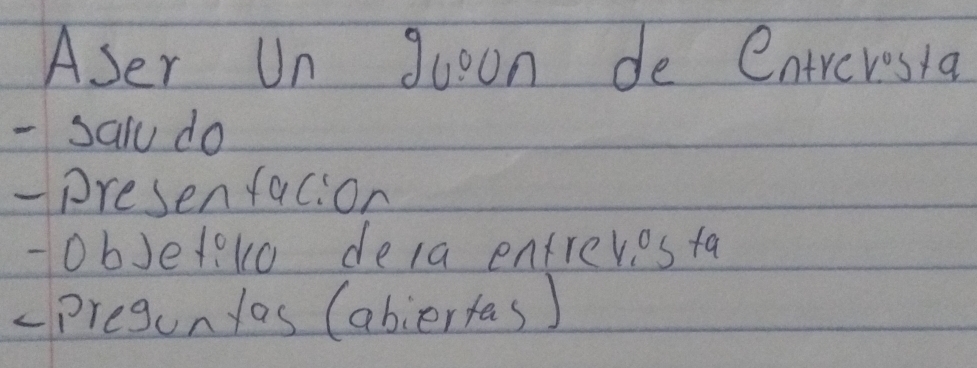 Aser Un guion de Entrevista
- saludo
- Presentacion
- Objetivo de la entrevista
- Preguntas (abiertas)